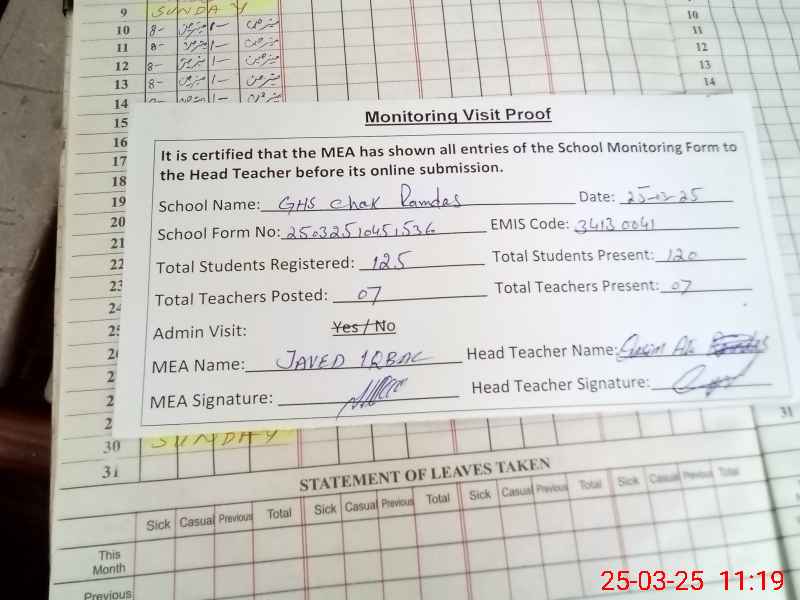 9 SUNDAY
10 8-
11 8-
12 8-
13 8-
14
15
16
17
18
19
20
21
22
23
30 SUNDAY
31
10
11
12
13
14
31
Monitoring Visit Proof
It is certified that the MEA has shown all entries of the School Monitoring Form to
the Head Teacher before its online submission.
School Name: GHS Chak Ramdas Date: 25-03-25
School Form No: 25032510451536 EMIS Code: 34130041
Total Students Registered: 125 Total Students Present: 120
Total Teachers Posted: 07 Total Teachers Present: 07
Admin Visit: Yes / No
MEA Name: JAVED IQBAL Head Teacher Name:
MEA Signature: Head Teacher Signature:
STATEMENT OF LEAVES TAKEN
Sick Casual Previous Total Sick Casual Previous Total Sick Casual Previous Total Sick Casual Previous Total
This
Month
Previous
25-03-25 11:19